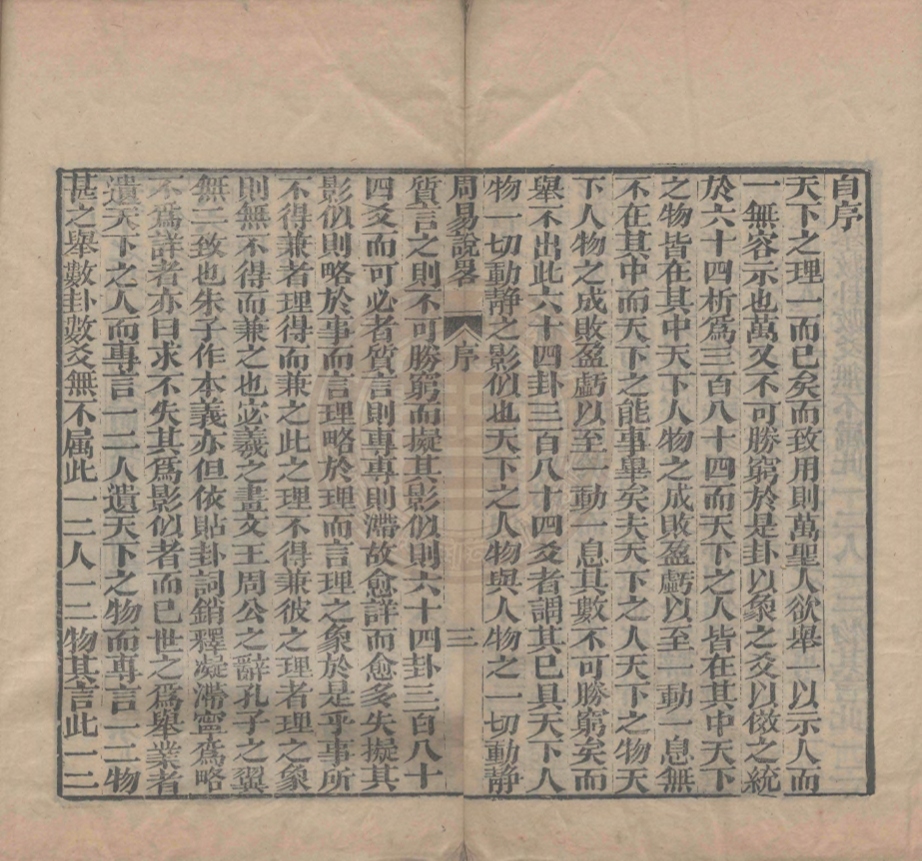 自序
天下之理一而已矣而致用則萬聖人欲舉一以示人而
一無容示也萬又不可勝窮於是卦以象之爻以傚之統
於六十四析爲三百八十四而天下之人皆在其中天下
之物皆在其中天下人物之成敗盈虧以至一動一息無
不在其中而天下之能事畢矣夫天下之人天下之物天
下人物之成敗盈虧以至一動一息其數不可勝窮矣而
舉不出此六十四卦三百八十四爻者謂其已具天下人
物一切動靜之影似也天下之人物與人物之一切動靜
周易說畧
序
三
質言之則不可勝窮而擬其影似則六十四卦三百八十
四爻而可必者質言則專專則滯故愈詳而愈多失擬其
影似則略於事而言理略於理而言理之象於是乎事所
不得兼者理得而兼之此之理不得兼彼之理者理之象
則無不得而兼之也宓羲之畫文王周公之辭孔子之翼
無二致也朱子作本義亦但依貼卦詞銷釋凝滯寧爲略
不爲詳者亦曰求不失其爲影似者而已世之爲舉業者
遺天下之人而專言一二人遺天下之物而專言一二物
甚之舉數卦數爻無不属此一二人一二物其言此一二